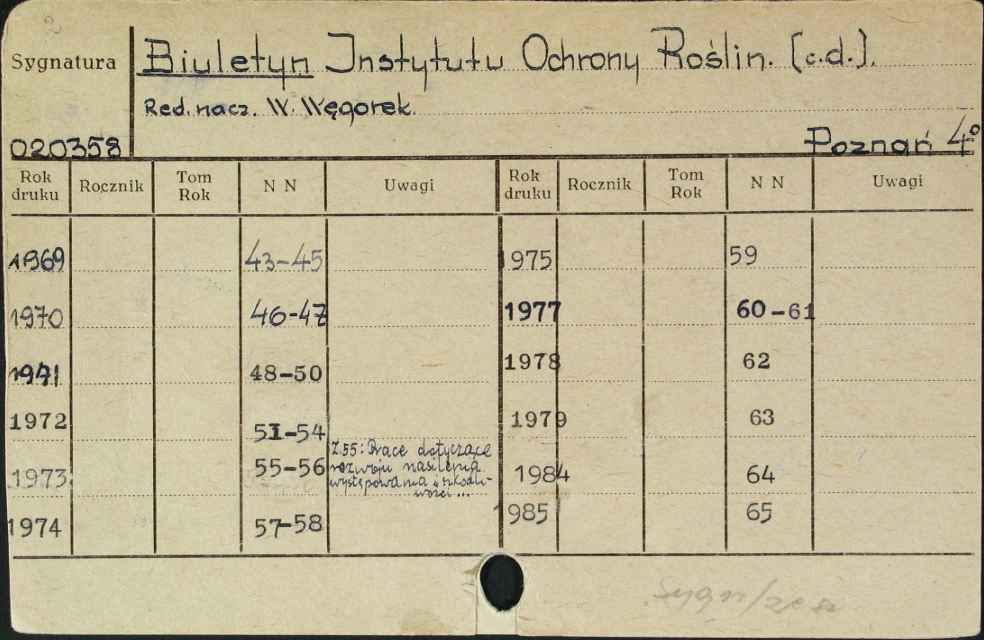 Sygnatura
Biuletyn Instytutu Ochrony Roślin. (c.d.).
Red. nacz. W. Węgorek.
020358
Poznań 4°
Rok druku Rocznik Tom Rok N N Uwagi Rok druku Rocznik Tom Rok N N Uwagi
1969 43-45 1975 59
1970 46-47 1977 60-61
1971 48-50 1978 62
1972 51-54 1979 63
1973 55-56 Z.55: Prace dotyczące 1984 64
rozwoju nasilenia
występowania i szkodli-
wości...
1974 57-58 1985 65